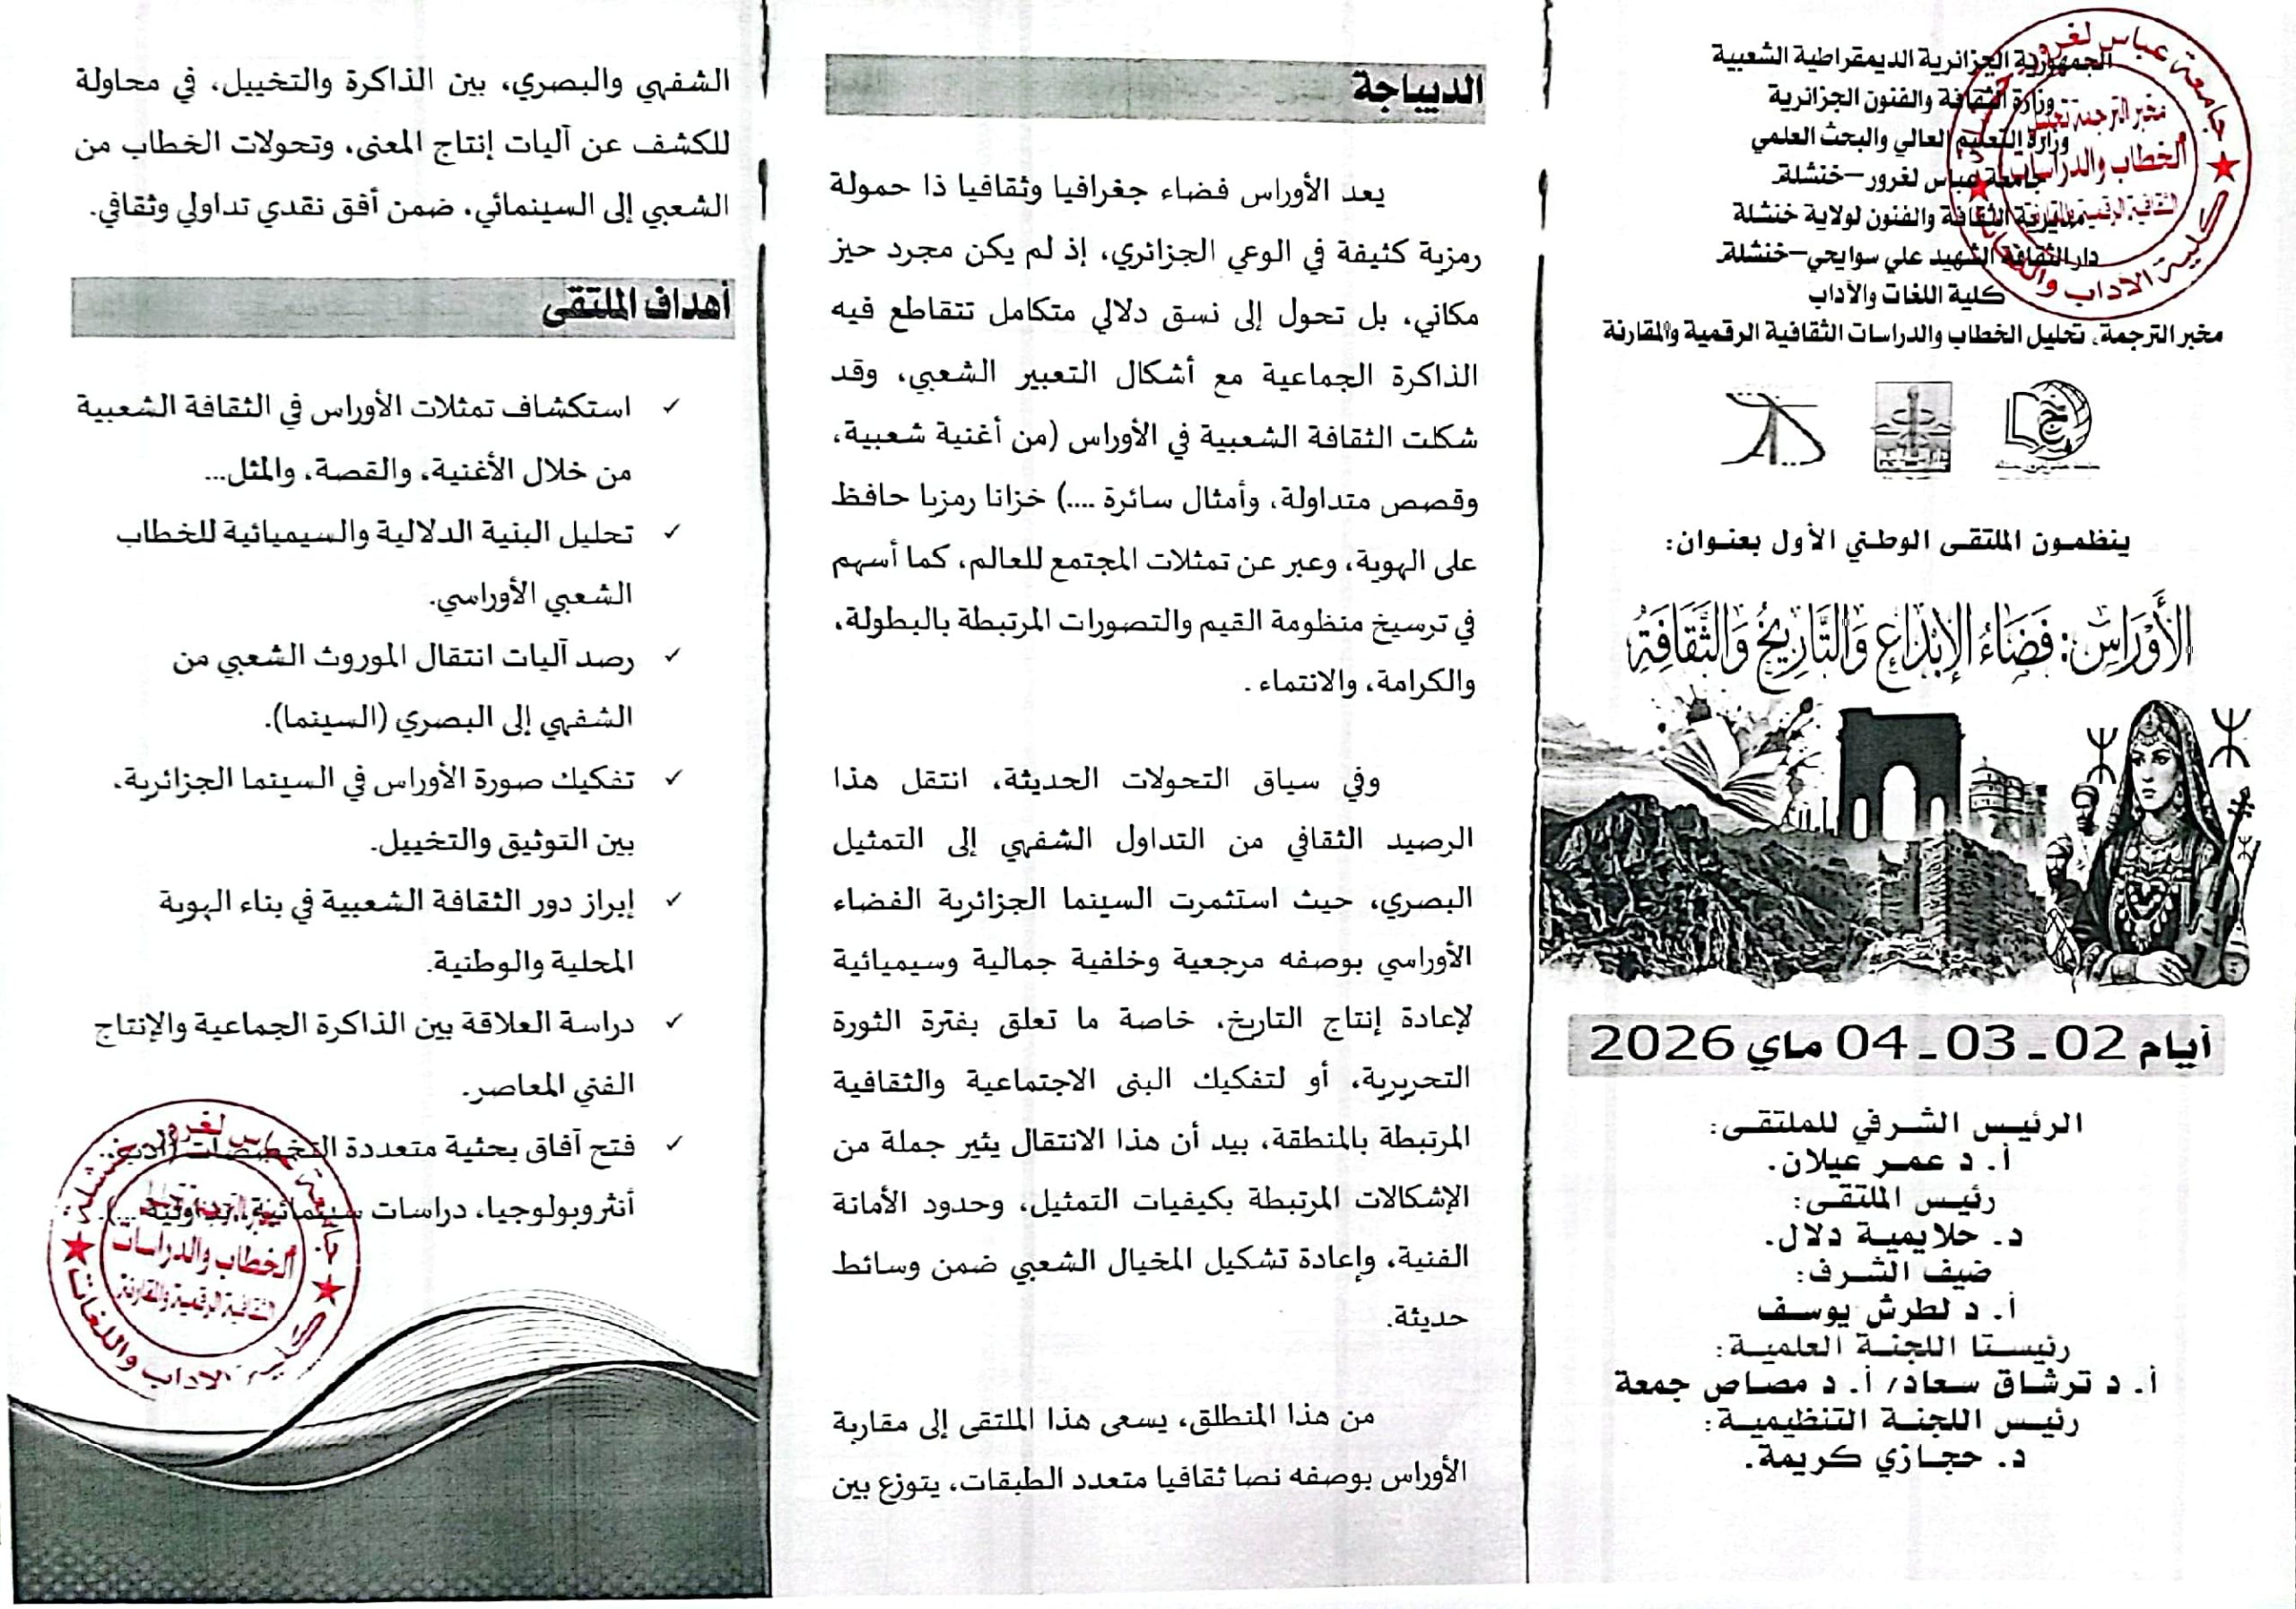 الجمهورية الجزائرية الديمقراطية الشعبية
وزارة الثقافة والفنون الجزائرية
وزارة التعليم العالي والبحث العلمي
جامعة عباس لغرور–خنشلة
مديرية الثقافة والفنون لولاية خنشلة
دار الثقافة الشهيد علي سوايحي–خنشلة
كلية اللغات والآداب
مخبر الترجمة، تحليل الخطاب والدراسات الثقافية الرقمية والمقارنة
جامعة عباس لغرور
مخبر الترجمة تحليل
الخطاب والدراسات
الثقافية الرقمية والمقارنة
كلية الآداب واللغات
ينظمون الملتقى الوطني الأول بعنوان:
الأَوْرَاسُ: فَضَاءُ الإِبْدَاعِ وَالتَّارِيخِ وَالثَّقَافَةِ
أيام 02 ـ 03 ـ 04 ماي 2026
الرئيس الشرفي للملتقى:
أ. د عمر عيلان.
رئيس الملتقى:
د. حلايمية دلال.
ضيف الشرف:
أ. د لطرش يوسف
رئيستا اللجنة العلمية:
أ. د ترشاق سعاد/ أ. د مصاص جمعة
رئيس اللجنة التنظيمية:
د. حجازي كريمة.
الديباجة
يعد الأوراس فضاء جغرافيا وثقافيا ذا حمولة
رمزية كثيفة في الوعي الجزائري، إذ لم يكن مجرد حيز
مكاني، بل تحول إلى نسق دلالي متكامل تتقاطع فيه
الذاكرة الجماعية مع أشكال التعبير الشعبي، وقد
شكلت الثقافة الشعبية في الأوراس (من أغنية شعبية،
وقصص متداولة، وأمثال سائرة ....) خزانا رمزيا حافظ
على الهوية، وعبر عن تمثلات المجتمع للعالم، كما أسهم
في ترسيخ منظومة القيم والتصورات المرتبطة بالبطولة،
والكرامة، والانتماء .
وفي سياق التحولات الحديثة، انتقل هذا
الرصيد الثقافي من التداول الشفهي إلى التمثيل
البصري، حيث استثمرت السينما الجزائرية الفضاء
الأوراسي بوصفه مرجعية وخلفية جمالية وسيميائية
لإعادة إنتاج التاريخ، خاصة ما تعلق بفترة الثورة
التحريرية، أو لتفكيك البنى الاجتماعية والثقافية
المرتبطة بالمنطقة، بيد أن هذا الانتقال يثير جملة من
الإشكالات المرتبطة بكيفيات التمثيل، وحدود الأمانة
الفنية، وإعادة تشكيل المخيال الشعبي ضمن وسائط
حديثة.
من هذا المنطلق، يسعى هذا الملتقى إلى مقاربة
الأوراس بوصفه نصا ثقافيا متعدد الطبقات، يتوزع بين
الشفهي والبصري، بين الذاكرة والتخييل، في محاولة
للكشف عن آليات إنتاج المعنى، وتحولات الخطاب من
الشعبي إلى السينمائي، ضمن أفق نقدي تداولي وثقافي.
أهداف الملتقى
✓ استكشاف تمثلات الأوراس في الثقافة الشعبية
من خلال الأغنية، والقصة، والمثل...
✓ تحليل البنية الدلالية والسيميائية للخطاب
الشعبي الأوراسي.
✓ رصد آليات انتقال الموروث الشعبي من
الشفهي إلى البصري (السينما).
✓ تفكيك صورة الأوراس في السينما الجزائرية،
بين التوثيق والتخييل.
✓ إبراز دور الثقافة الشعبية في بناء الهوية
المحلية والوطنية.
✓ دراسة العلاقة بين الذاكرة الجماعية والإنتاج
الفني المعاصر.
✓ فتح آفاق بحثية متعددة التخصصات (أدب،
أنثروبولوجيا، دراسات سينمائية، تداولية ...).
جامعة عباس لغرور خنشلة
مخبر الترجمة تحليل
الخطاب والدراسات
الثقافية الرقمية والمقارنة
كلية الآداب واللغات